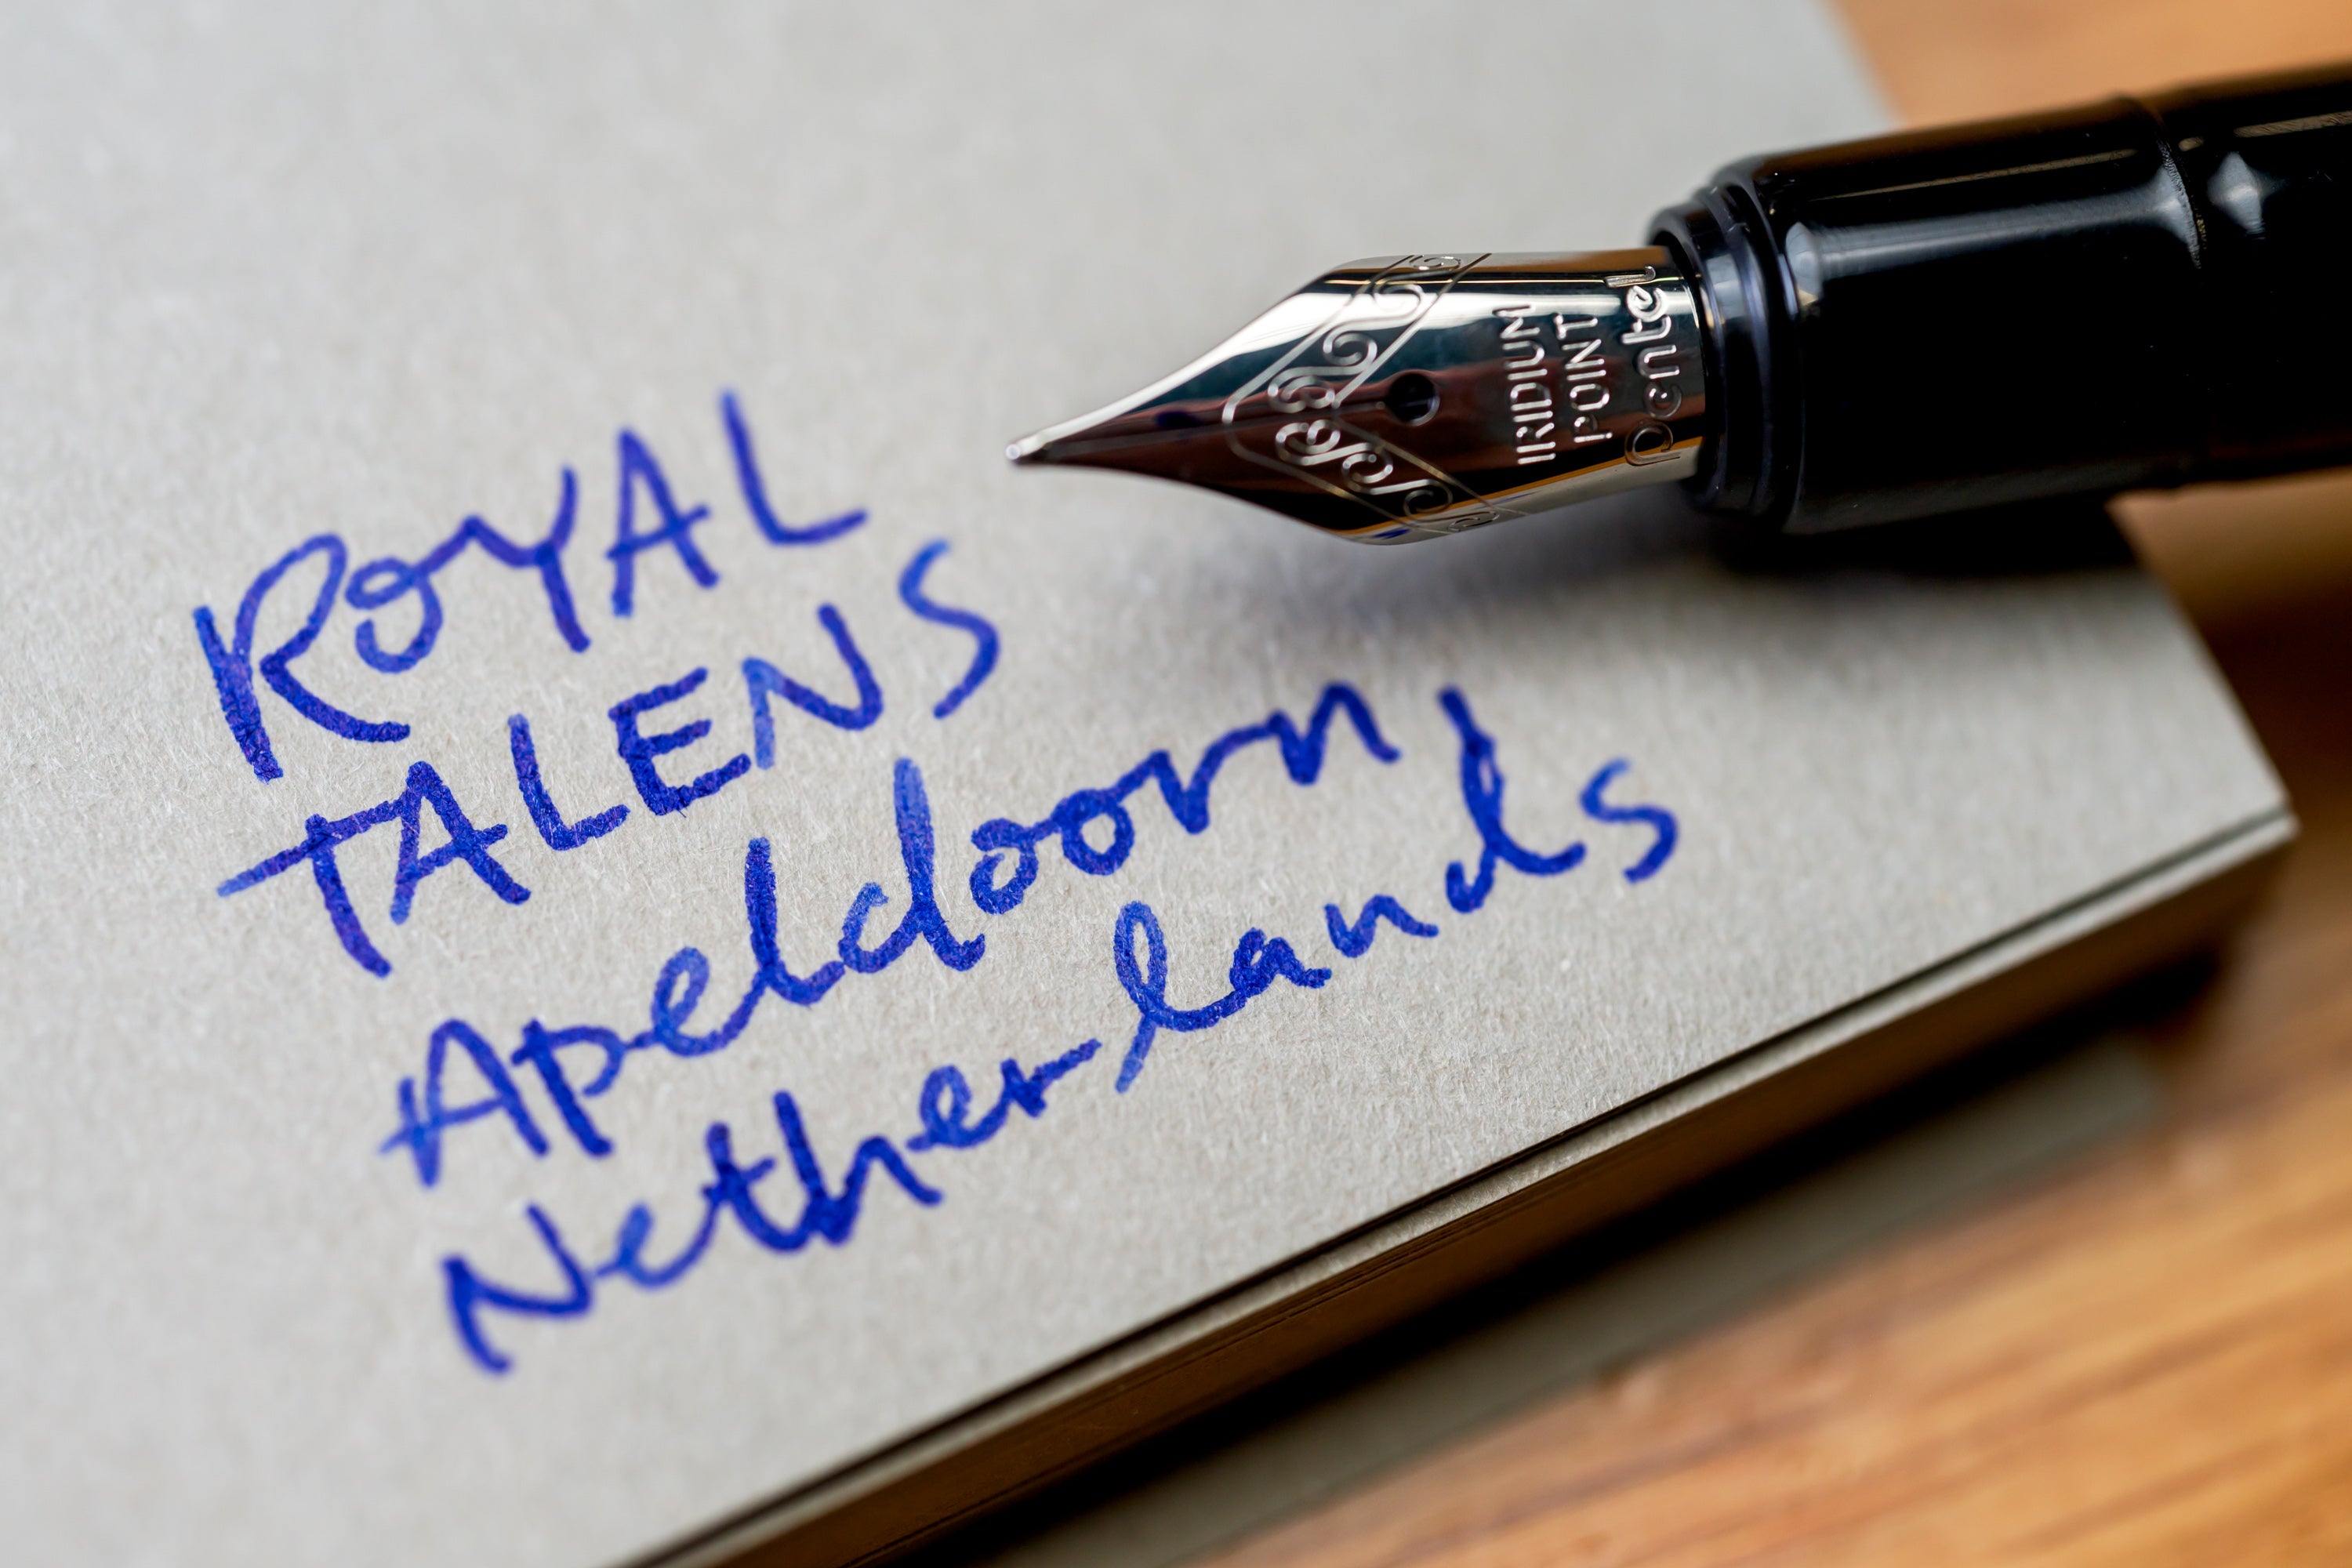 ROYAL
TALENS
Apeldoorn
Netherlands
IRIDIUM
POINT
Pentel